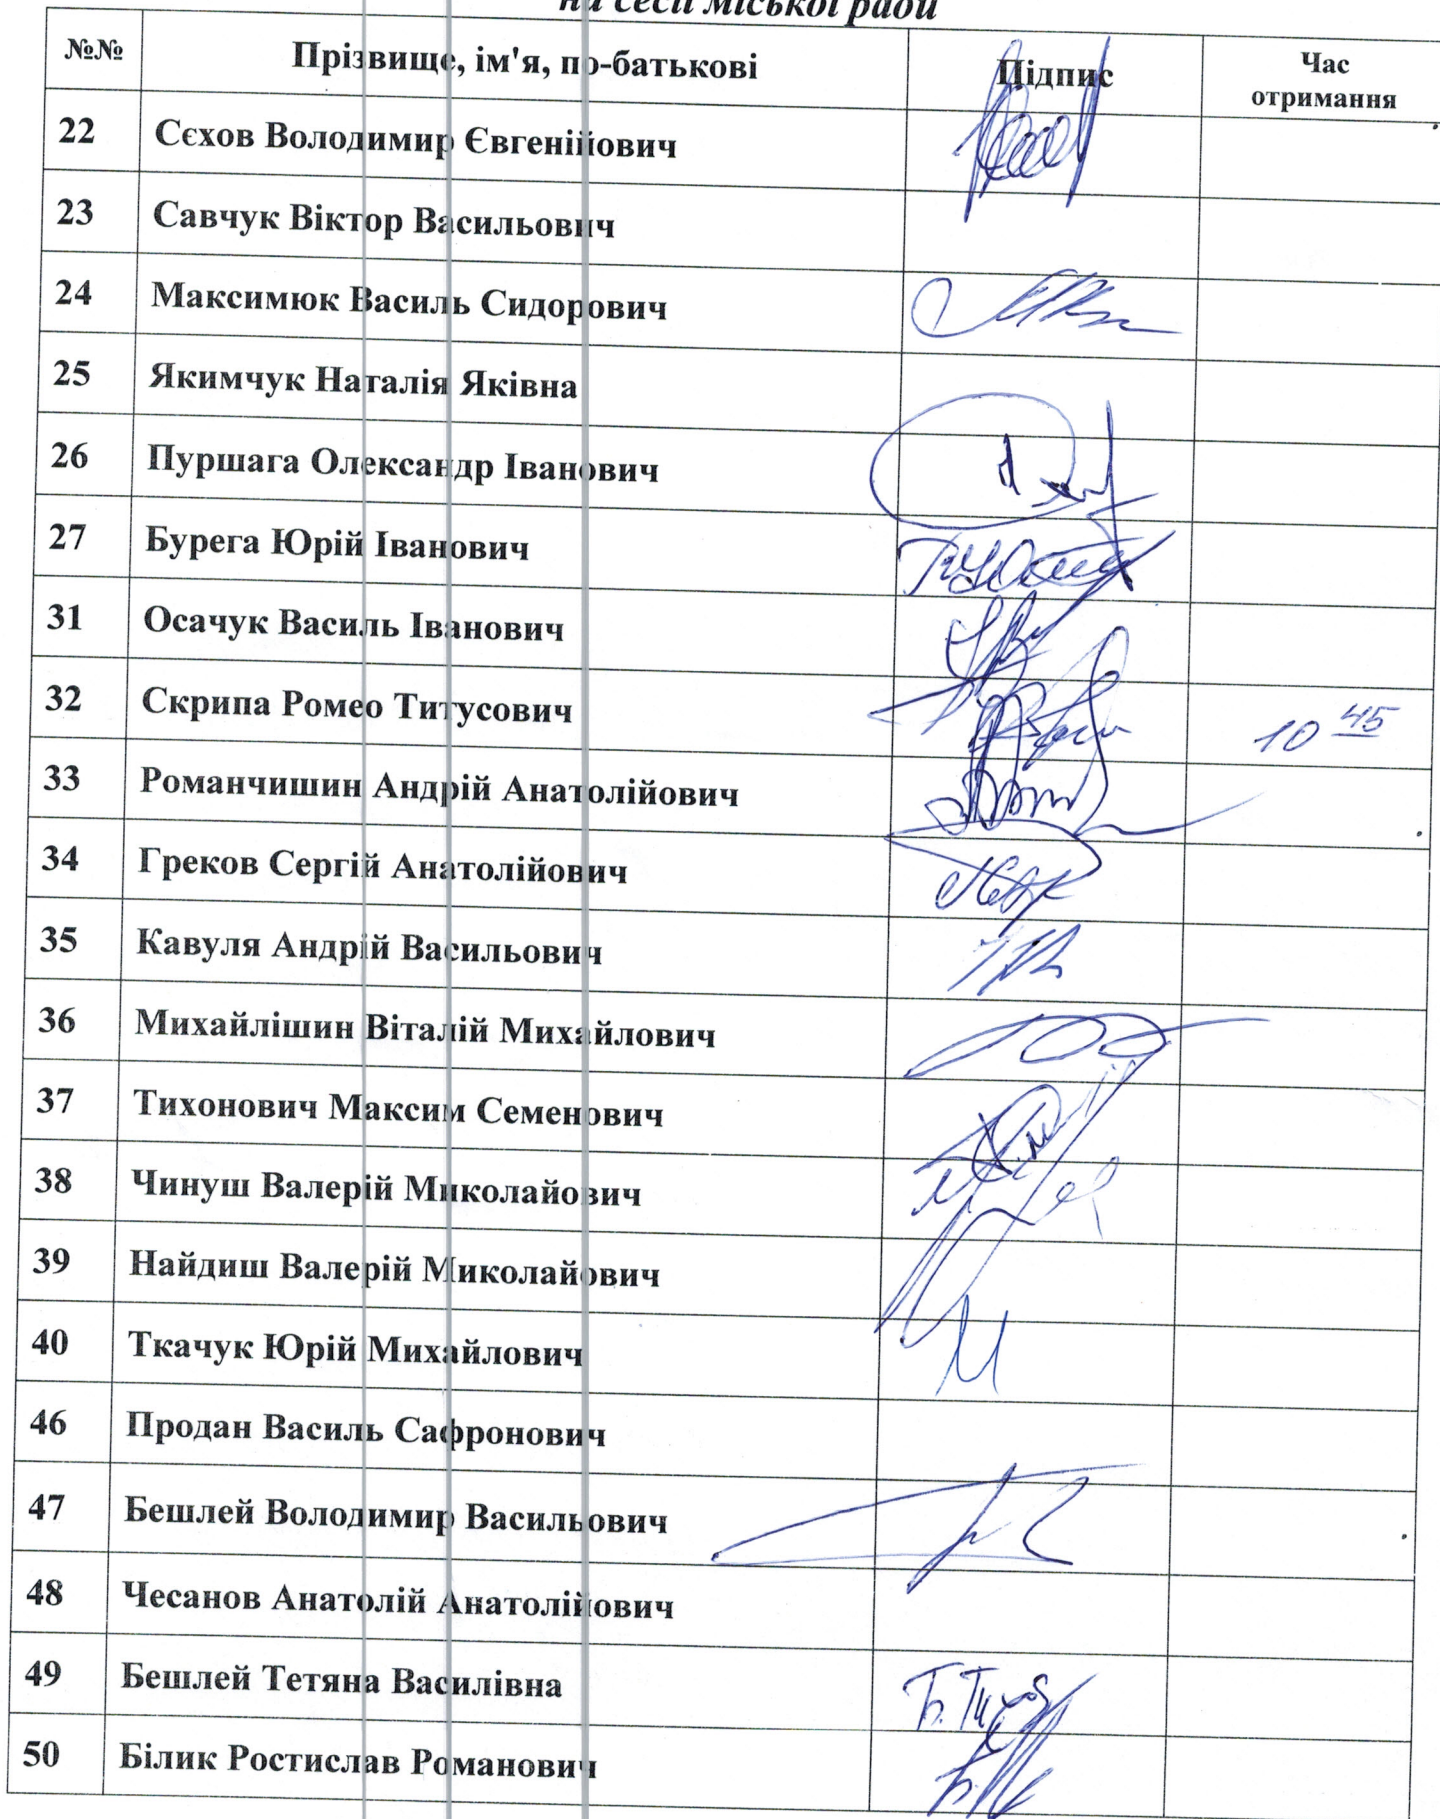 на сесії міської ради
№№ Прізвище, ім'я, по-батькові Підпис Час отримання
22 Сєхов Володимир Євгенійович
23 Савчук Віктор Васильович
24 Максимюк Василь Сидорович
25 Якимчук Наталія Яківна
26 Пуршага Олександр Іванович
27 Бурега Юрій Іванович
31 Осачук Василь Іванович
32 Скрипа Ромео Титусович 10 45
33 Романчишин Андрій Анатолійович
34 Греков Сергій Анатолійович
35 Кавуля Андрій Васильович
36 Михайлішин Віталій Михайлович
37 Тихонович Максим Семенович
38 Чинуш Валерій Миколайович
39 Найдиш Валерій Миколайович
40 Ткачук Юрій Михайлович
46 Продан Василь Сафронович
47 Бешлей Володимир Васильович
48 Чесанов Анатолій Анатолійович
49 Бешлей Тетяна Василівна
50 Білик Ростислав Романович